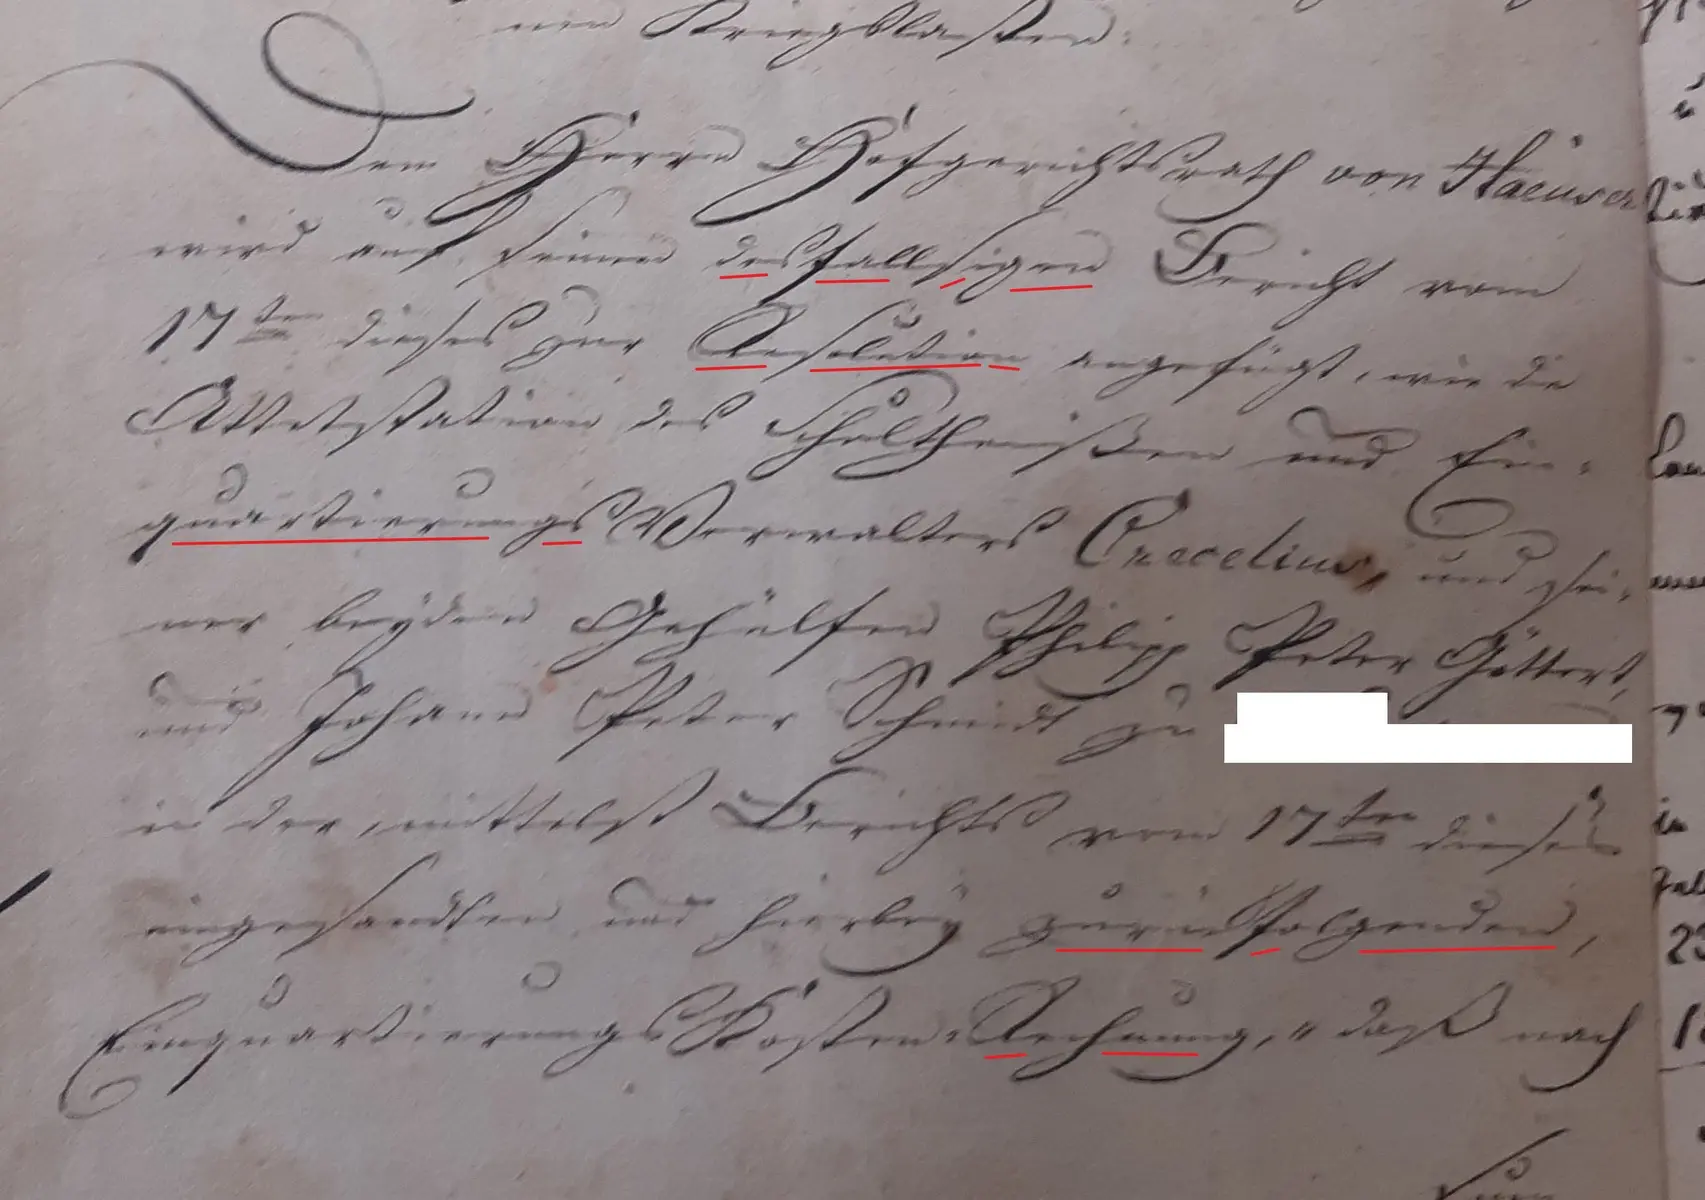 nen Kriegslasten.
Dem Herrn Hofgerichtsrath von Haeuser
wird auf seinen desfallsigen Bericht vom
17ten dieses zur Resolution angefügt, wie die
Attestation des Schultheißen und Ein-
quartierungs Verwalters Crecelius, und sei-
ner beyden Gehülfen Philipp Peter Göttert,
und Johann Peter Schmidt zu
in der, mittelst Berichts vom 17ten dieses
eingesandten und hierbey zurückfolgenden,
Einquartierungs Kosten-Rechnung, "daß nach